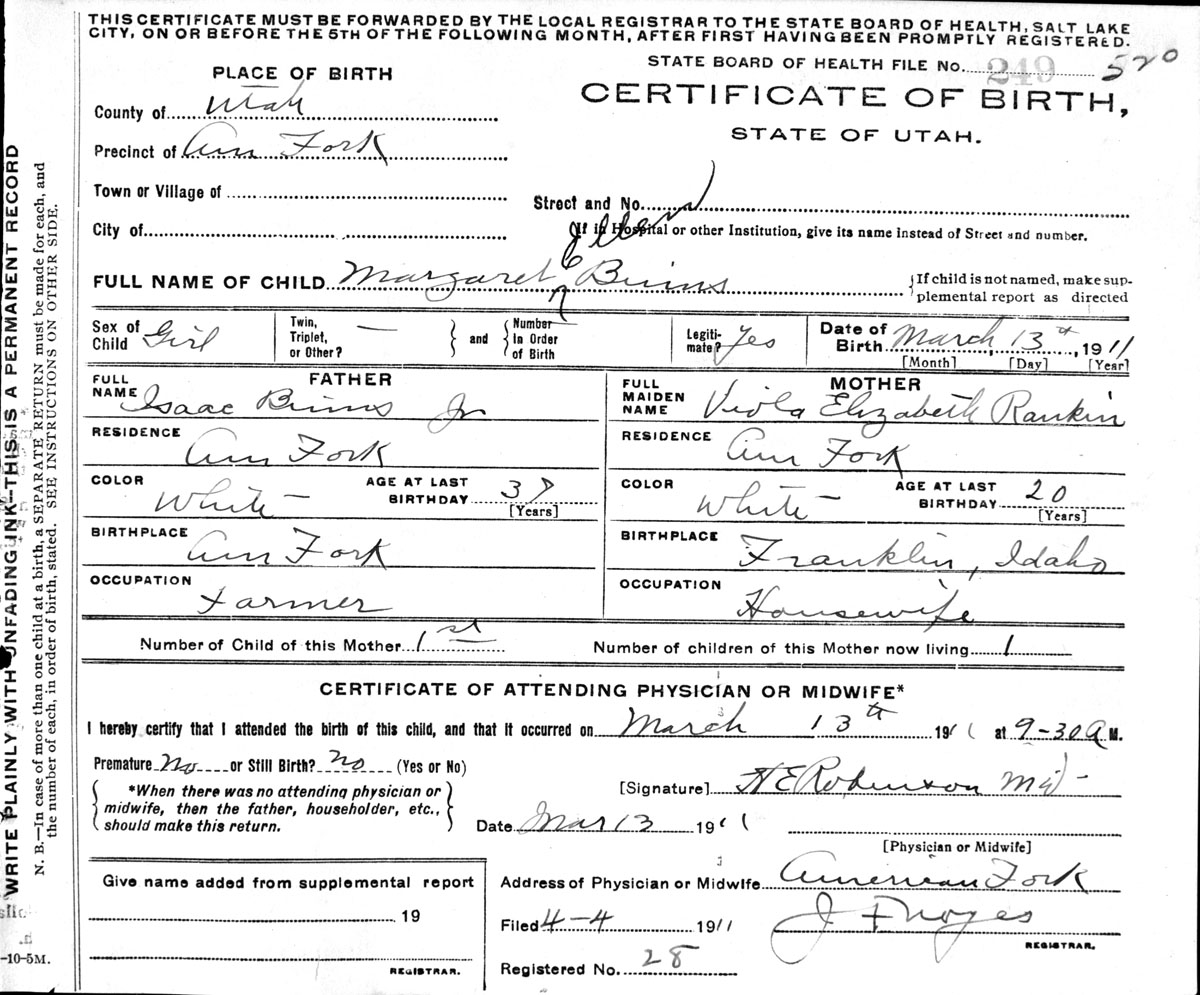 THIS CERTIFICATE MUST BE FORWARDED BY THE LOCAL REGISTRAR TO THE STATE BOARD OF HEALTH, SALT LAKE
CITY, ON OR BEFORE THE 5TH OF THE FOLLOWING MONTH, AFTER FIRST HAVING BEEN PROMPTLY REGISTERED.
STATE BOARD OF HEALTH FILE No. 249 520
PLACE OF BIRTH
CERTIFICATE OF BIRTH,
STATE OF UTAH.
County of Utah
Precinct of Am Fork
Town or Village of
Street and No.
City of
If in Hospital or other Institution, give its name instead of Street and number.
Ellen
FULL NAME OF CHILD Margaret Binns
{If child is not named, make sup-
plemental report as directed
Sex of Child Girl
Twin, Triplet, or Other? —
and
Number In Order of Birth —
Legiti-mate? Yes
Date of Birth March 13th, 1911
[Month] [Day] [Year]
FATHER
FULL NAME Isaac Binns Jr
RESIDENCE Am Fork
COLOR White
AGE AT LAST BIRTHDAY 37
[Years]
BIRTHPLACE Am Fork
OCCUPATION Farmer
MOTHER
FULL MAIDEN NAME Viola Elizabeth Rankin
RESIDENCE Am Fork
COLOR White
AGE AT LAST BIRTHDAY 20
[Years]
BIRTHPLACE Franklin, Idaho
OCCUPATION Housewife
Number of Child of this Mother 1st
Number of children of this Mother now living 1
CERTIFICATE OF ATTENDING PHYSICIAN OR MIDWIFE*
I hereby certify that I attended the birth of this child, and that it occurred on March 13th 1911 at 9-30 A M.
Premature No or Still Birth? no (Yes or No)
*When there was no attending physician or
midwife, then the father, householder, etc.,
should make this return.
[Signature] H E Robinson Md
Date Mar 13 1911
[Physician or Midwife]
Give name added from supplemental report
19
REGISTRAR.
Address of Physician or Midwife American Fork
Filed 4-4 1911 J F Noyes
REGISTRAR.
Registered No. 28
WRITE PLAINLY WITH UNFADING INK—THIS IS A PERMANENT RECORD
N. B.—In case of more than one child at a birth, a SEPARATE RETURN must be made for each, and
the number of each, in order of birth, stated. SEE INSTRUCTIONS ON OTHER SIDE.
-10-5M.